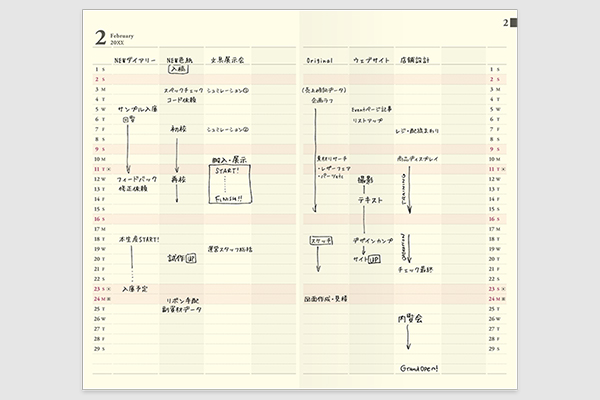 2 February
20XX
2
NEWダイアリー
NEW色紙
文具展示会
Original
ウェブサイト
店舗設計
1 S
入稿
2 S
3 M
スペックチェック
シュミレーション①
(売上時系データ)
4 T
コード依頼
企画ラフ
5 W
サンプル入庫
Eventページ記事
6 T
回覧
リストアップ
7 F
初校
シュミレーション②
レジ・配境まわり
8 S
9 S
10 M
搬入・展示
素材リサーチ
商品ディスプレイ
11 T
START!
・レザーフェア
TRAINING
12 W
フィードバック
再校
・パーツetc
撮影
13 T
修正依頼
14 F
FINISH!!
テキスト
15 S
16 S
17 M
18 T
本生産START!
スケッチ
デザインカンプ
OPERATION
19 W
運営スタッフ総括
20 T
試作UP
サイトUP
21 F
チェック最終
22 S
23 S
入庫予定
24 M
リボン手配
図面作成・見積
25 T
副資材データ
26 W
内覧会
27 T
28 F
29 S
GrandOpen!